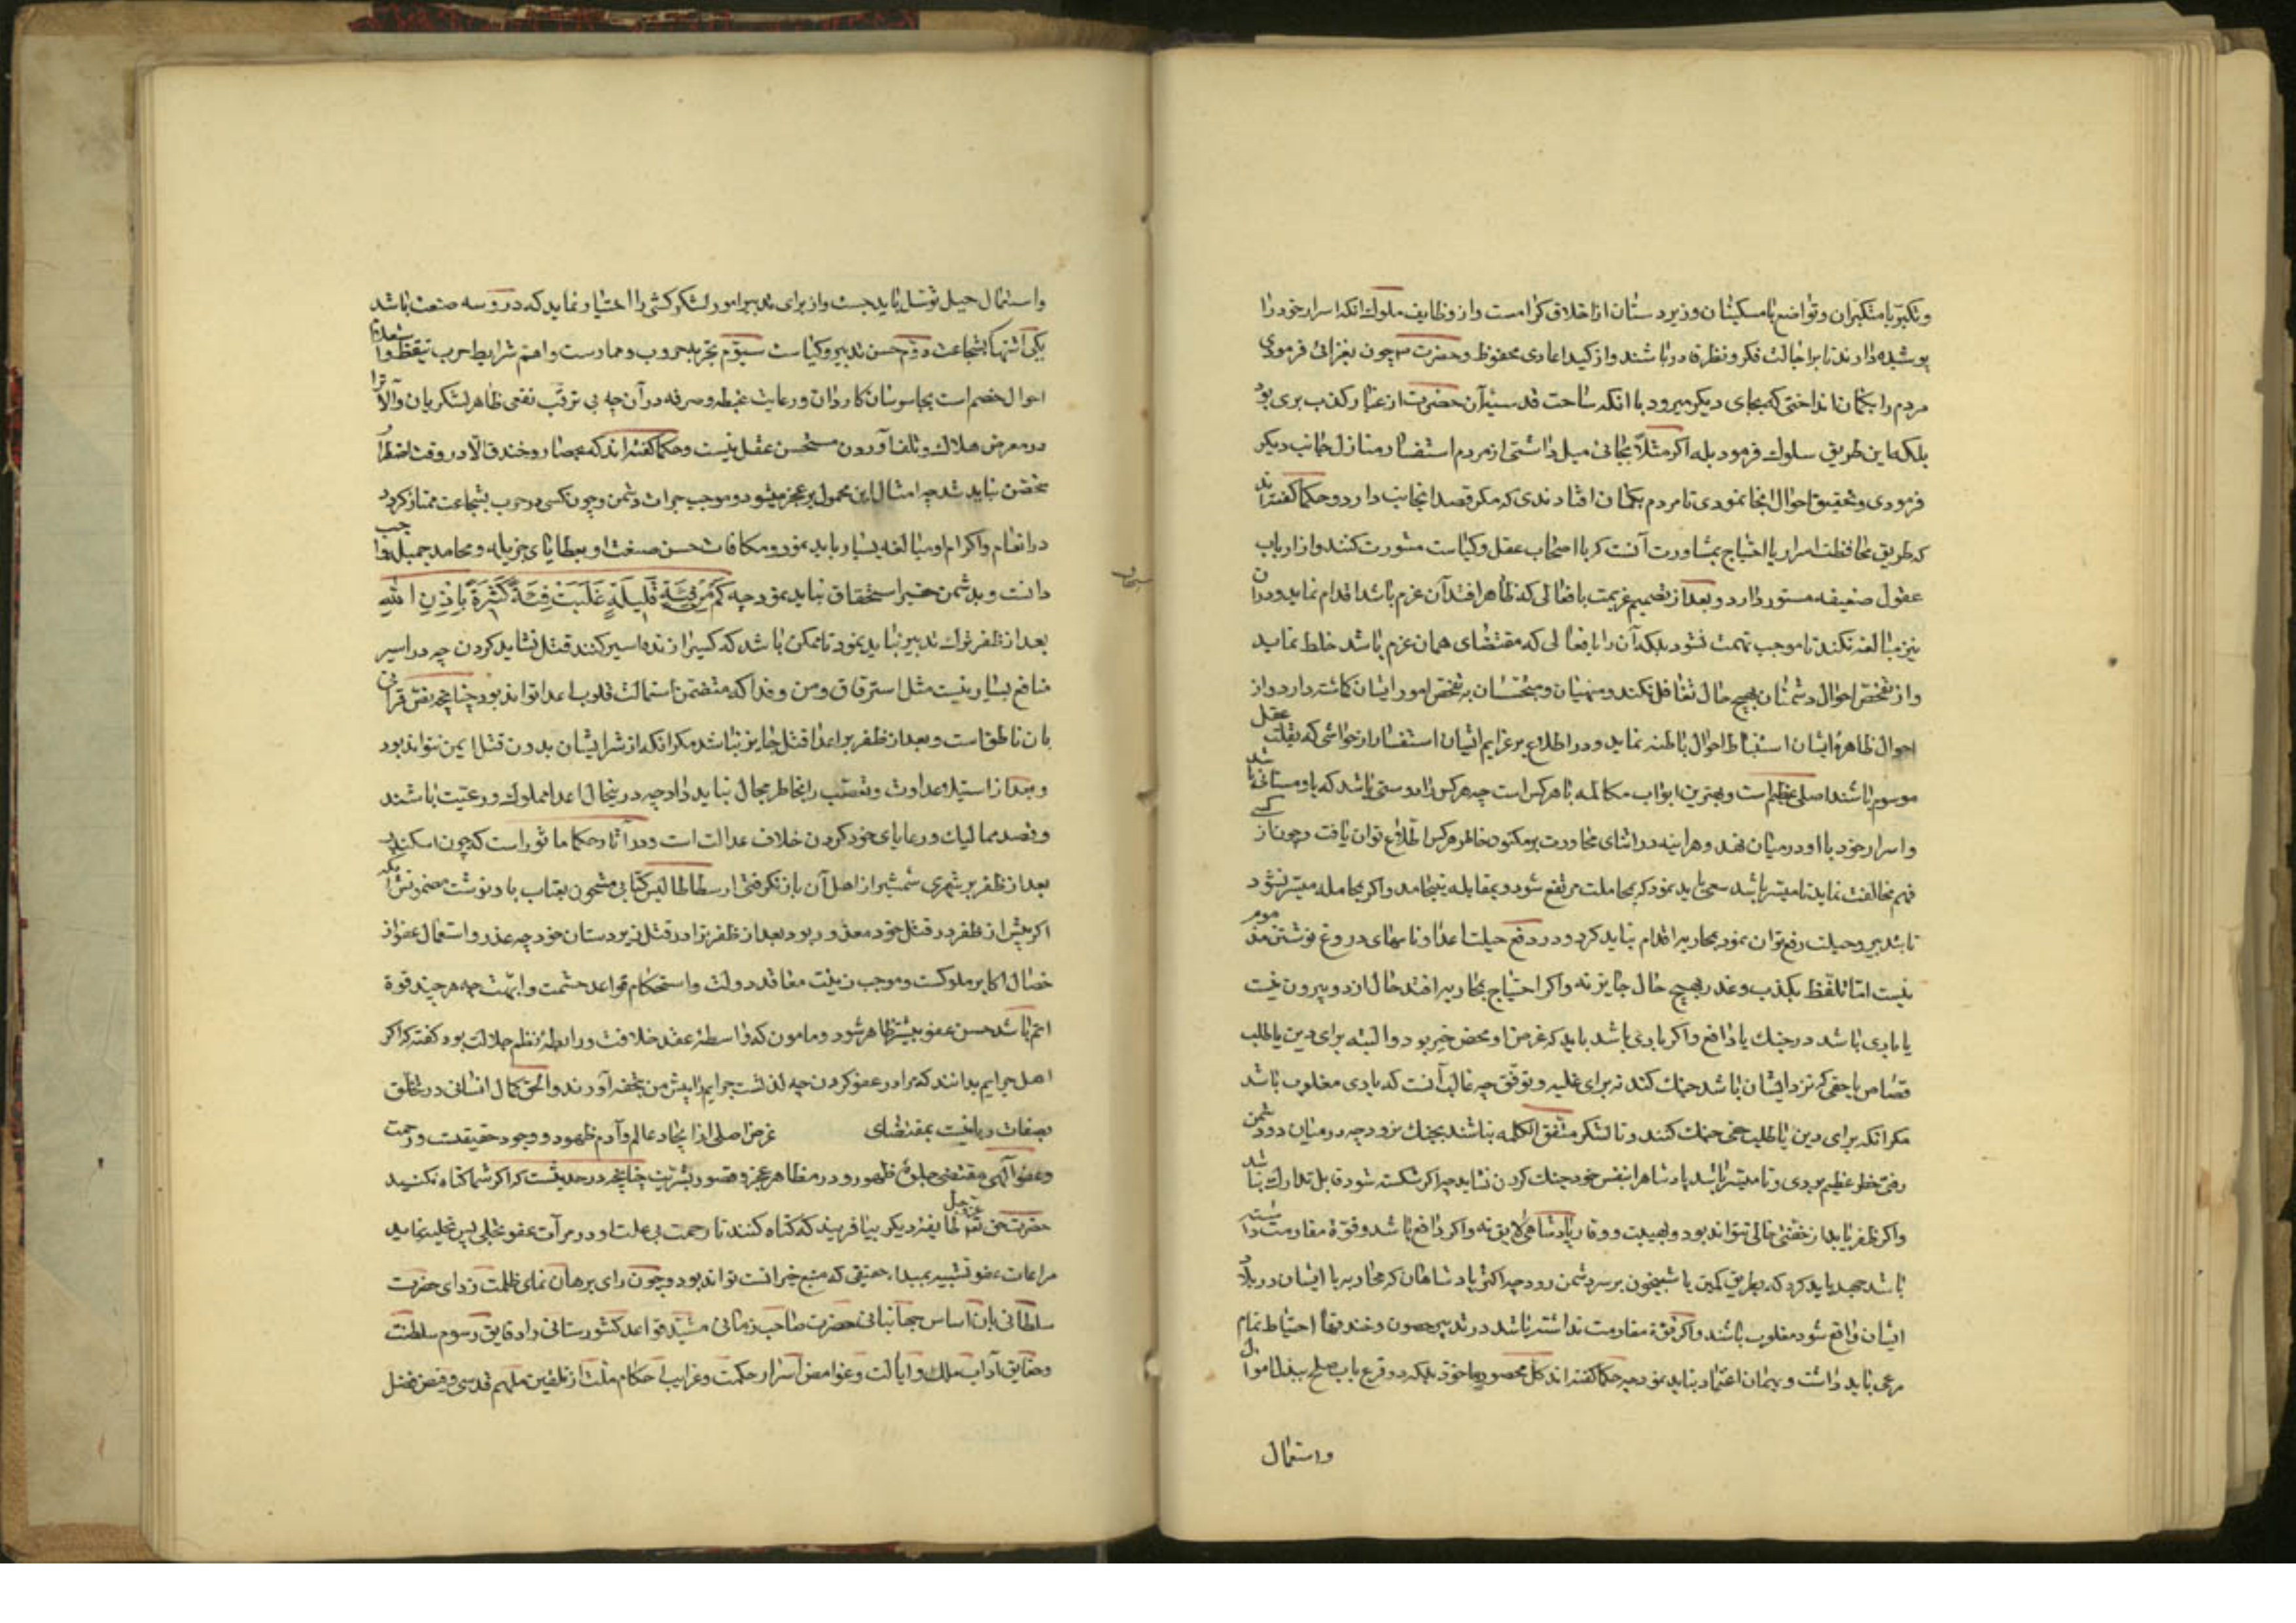 وتکبر با متکبران وتواضع با مسکینان وزیردستان از اخلاق کرامست واز وظایف ملوک انکه اسرار خود را
پوشیده دارند تا بر اجالت فکر ونظر قادر باشند واز کید اعادی محفوظ وحضرت چون بغزائی فرمودی
مردم را بکمان انداختی که بجای دیکر میرود با انکه ساحت قدسیه آن حضرت از غبار کذب بری بود
بلکه این طریق سلوک فرمود بله اکر مثلا بجائی میل داشتی از مردم استفسار منازل جانب دیکر
فرمودی وتحقیق احوال انجا نمودی تا مردم بکمان افتادندی که مکر قصد انجانب دارد وحکما کفته‌اند
که طریق محافظت اسرار با احتیاج بمشاورت آنست که با اصحاب عقل وکیاست مشورت کنند واز ارباب
عقول ضعیفه مستور دارد وبعد از تصمیم عزیمت با فعالی که ظاهرا ضد آن عزم باشد اقدام نماید ودران
نیز مبالغه نکند تا موجب تهمت نشود بلکه آن را با فعالی که مقتضای همان عزم باشد خلط نماید
واز تفحص احوال دشمنان بهیچ حال تغافل نکند ومنهیان ومتجسسان به تفحص امور ایشان کماشته دارد واز
احوال ظاهره ایشان استنباط احوال باطنه نماید ودر اطلاع بر عزایم ایشان استفسار از خواشی که بقلت عقل
موسوم باشند اصلی عظیم است وبهترین ابواب مکالمه با هر کس است چه هر کس را دوستی باشد که با او مستانس باشد
واسرار خود با او در میان نهد وهر اینه در اثنای محاورت بر مکنون خاطر هر کس اطلاع توان یافت وچون از کسی
فهم مخالفت نماید تا میسر باشد سعی باید نمود که بمجاملت مرتفع شود وبمقابله نینجامد واکر بمجامله میسر نشود
تا بتدبیر وحیلت رفع توان نمود بمحاربه اقدام نباید کرد ودر دفع حیلت اعدا ونامهای دروغ نوشتن مذموم
نیست اما تلفظ بکذب وغدر بهیچ حال جایز نه واکر احتیاج بمحاربه افتد حال از دو بیرون نیست
یا بادی باشد در جنک یا دافع واکر بادی باشد باید که غرض او محض خیر بود والبته برای دین یا طلب
قصاص یا حقی که نزد ایشان باشد جنک کند نه برای غلبه وتفوق چه غالب آنست که بادی مغلوب باشد
مکر انکه برای دین یا طلب حق جنک کنند وتا لشکر متفق الکلمه نباشند بجنک نرود چه در میان دو دشمن
رفتن خطر عظیم بود وتا میسر باشد پادشاه را بنفس خود جنک کردن نشاید چه اکر شکسته شود قابل تدارک نباشد
واکر ظفر یابد از خفتی خالی نتواند بود وبهیبت ووقار پادشاهی لایق نه واکر دافع باشد وقوة مقاومت داشته
باشد جهد باید کرد که بطریق کمین یا شبیخون بر سر دشمن رود چه اکثر پادشاهان که محاربه با ایشان در بلاد
ایشان واقع شود مغلوب باشند واکر قوة مقاومت نداشته باشد در تدبیر حصون وخندقها احتیاط تمام
مرعی باید داشت وبهمان اعتماد نباید نمود چه حکما کفته‌اند کل محصور ماخوذ بلکه در قرع باب صلح ببذل اموال
واستعمال
واستعمال حیل توسل باید جست واز برای تدبیر امور لشکر کشی را اختیار نماید که در و سه صنعت باشد
یکی اشتهار بشجاعت دوم حسن تدبیر وکیاست سیوم تجربه حروب وممارست واهم شرایط حرب تیقظ واستعلام
احوال خصم است بجاسوسان کاردان ورعایت غبطه وصرفه در آن چه بی ترقب نفعی ظاهر لشکریان وآلات را
در معرض هلاک وتلف آوردن مستحسن عقل نیست وحکما کفته‌اند که بحصار وخندق الا در وقت اضطرار
متحصن نباید شد چه امثال این محمول بر عجز میشود وموجب جرات دشمن وچون کسی در حرب بشجاعت ممتاز کردد
در انعام واکرام او مبالغه بسیار باید نمود ومکافات حسن صنعت او بعطایای جزیله ومحامد جمیله واجب
دانست وبدشمن حقیر استحقاق نباید نمود چه کَمْ مِنْ فِئَةٍ قَلِیلَةٍ غَلَبَتْ فِئَةً کَثِیرَةً بِاِذْنِ اللهِ
بعد از ظفر ترک تدبیر نباید نمود تا ممکن باشد که کسی را زنده اسیر کنند قتل نشاید کردن چه در اسیر
منافع بسیار نیست مثل استرقاق ومن وفدا که متضمن استمالت قلوب اعدا تواند بود چنانچه نص قرآنی
بان ناطق است وبعد از ظفر بر اعدا قتل جایز نباشد مکر انکه از شر ایشان بدون قتل ایمن نتواند بود
وبعد از استیلا عداوت وتعصب را بخاطر مجال نباید داد چه درینحال اعدا مملوک ورعیت باشند
وقصد ممالیک ورعایای خود کردن خلاف عدالت است ودر آثار حکما ماثور است که چون اسکندر
بعد از ظفر بر شهری شمشیر از اهل آن باز نکرفتی ارسطاطالیس کتابی مشحون بعتاب باو نوشت مضمونش آنکه
اکر پیش از ظفر در قتل خود معذور بود بعد از ظفر ترا در قتل زیردستان خود چه عذر واستعمال عفو از
خصال اکابر ملوکست وموجب زینت معاقد دولت واستحکام قواعد حشمت وابهت چه هر چند قوة
اتم باشد حسن عفو بیشتر ظاهر شود ومامون که واسطهٔ عقد خلافت ورابطهٔ نظم جلالت بود کفته که اکر
اهل جرایم بدانند که مرا در عفو کردن چه لذتست جرایم را پیش من بتحفه آورند والحق کمال انسانی در تخلق
بصفات ربانیست بمقتضای غرض اصلی از ایجاد عالم وآدم ظهور ووجود حقیقت ورحمت
وعفو آلهی مقتضی جلوهٔ ظهور ودر مظاهر عجز وقصور بشریت چنانچه در حدیثست که اکر شما کناه نکنید
حضرت حق عز وجل طایفهٔ دیکر بیافریند که کناه کنند تا رحمت بی علت او در مرآت عفو تجلی پس تجلیه نماید
مراعات عفو تشبیه بمبدا حقیقی که منبع خیراتست تواند بود وچون رای برهان نمای ظلمت زدای حضرت
سلطانی بان اساس جهانبانی حضرت صاحب زمانی مشید قواعد کشورستانی را دقایق رسوم سلطنت
وحقایق آداب ملک وایالت وغوامض اسرار حکمت وغرایب احکام ملت از تلقین ملهم قدسی وفیض فضل